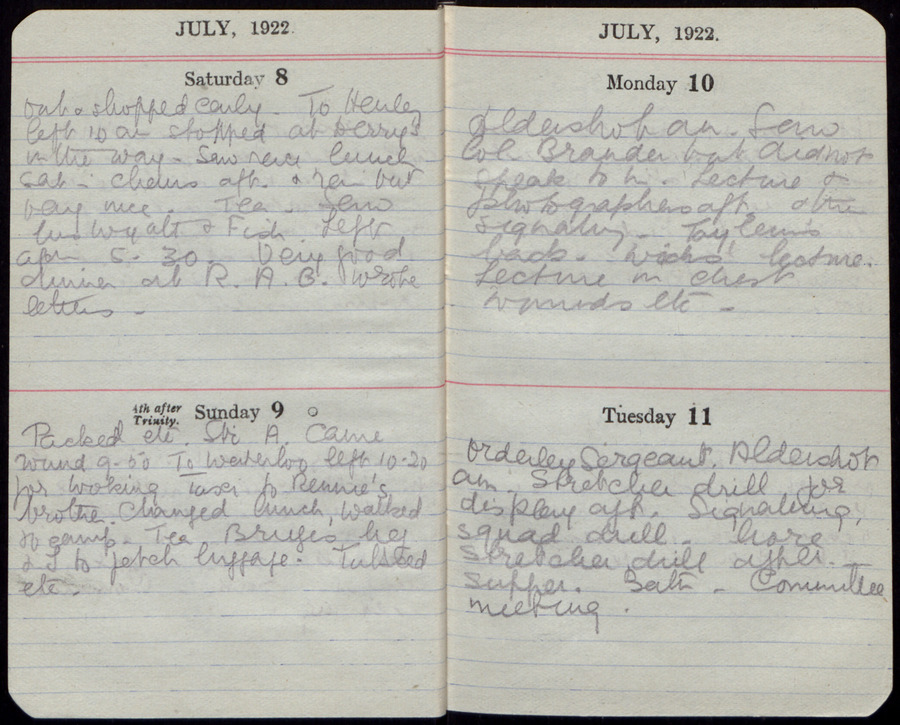 JULY, 1922.
Saturday 8
out & shopped early. To Henley
left 10 am stopped at Berry's
on the way - Saw race lunch
sat - chairs aft. & rain but
very nice. Tea. Saw
Wyatt & Fish. Left
5.30. Very good
dinner at R. A. C. Wrote
letters -
4th after Trinity.
Sunday 9
Packed etc. A. Came
round 9-50 To Waterloo left 10-20
for Woking Taxi to Rennie's
brother. Changed lunch, walked
to camp. Tea
& I to fetch luggage. Tubbed
etc -
JULY, 1922.
Monday 10
Aldershot am. Saw
Col Brander but did not
speak to him. Lecture &
photographers aft. &
Signalling.
back. lecture.
Lecture on chest
wounds etc -
Tuesday 11
Orderley Sergeant. Aldershot
am. Stretcher drill for
display aft. Signalling,
squad drill - more
stretcher drill after
supper. Bath - Committee
meeting.